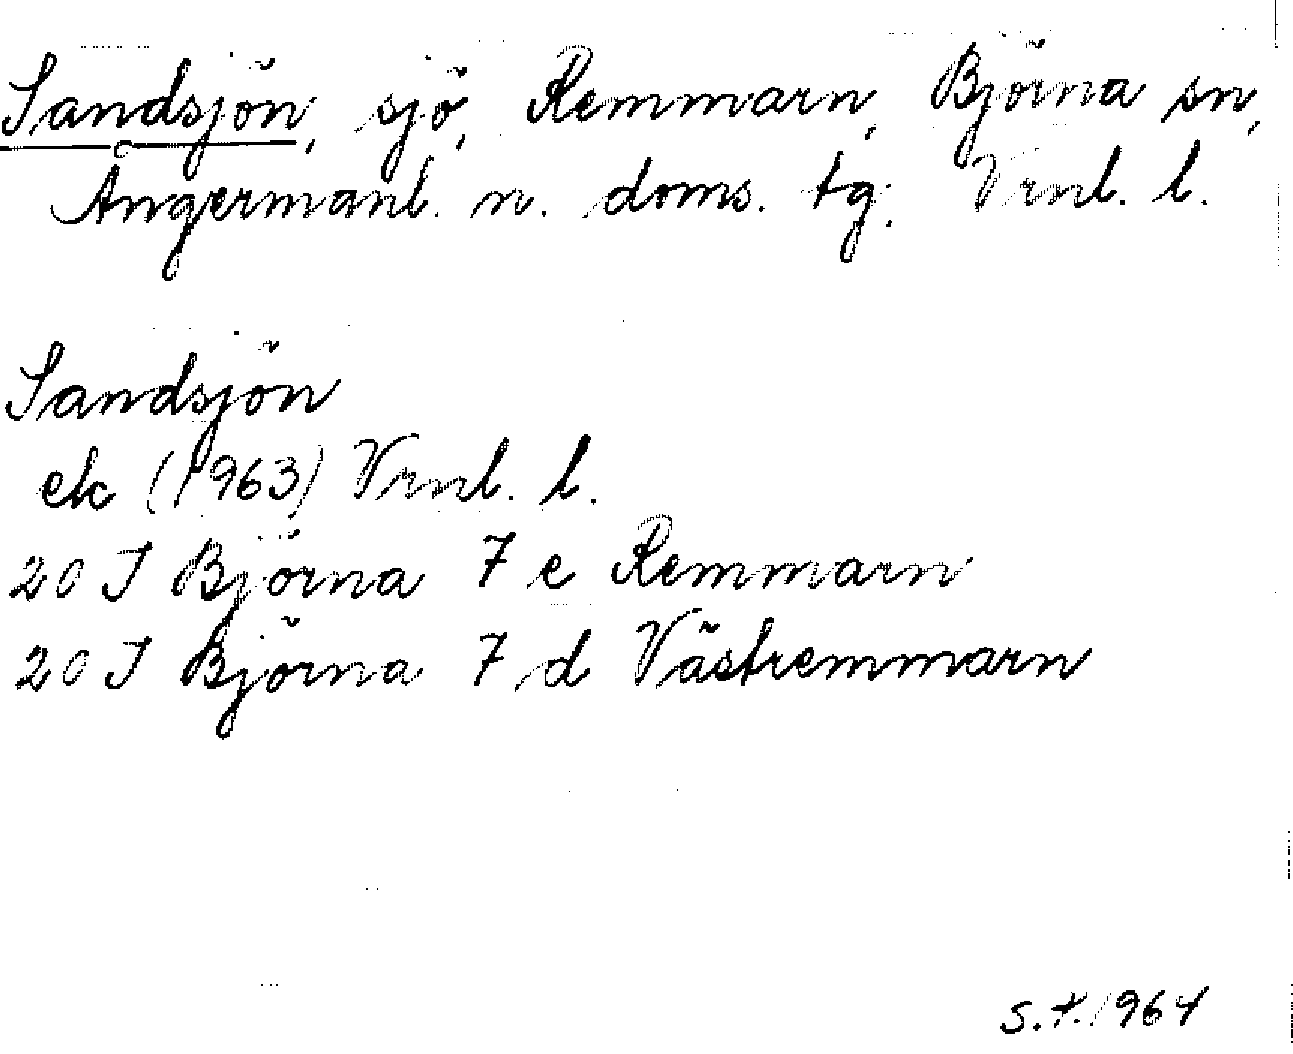 Sandsjön, sjö, Remmarn, Björna sn,
Ångermanl. n. doms. tg. Vrnl. l.
Sandsjön
ek (1963) Vrnl. l.
20 J Björna 7 e Remmarn
20 J Björna 7 d Västremmarn
S.t. 1964